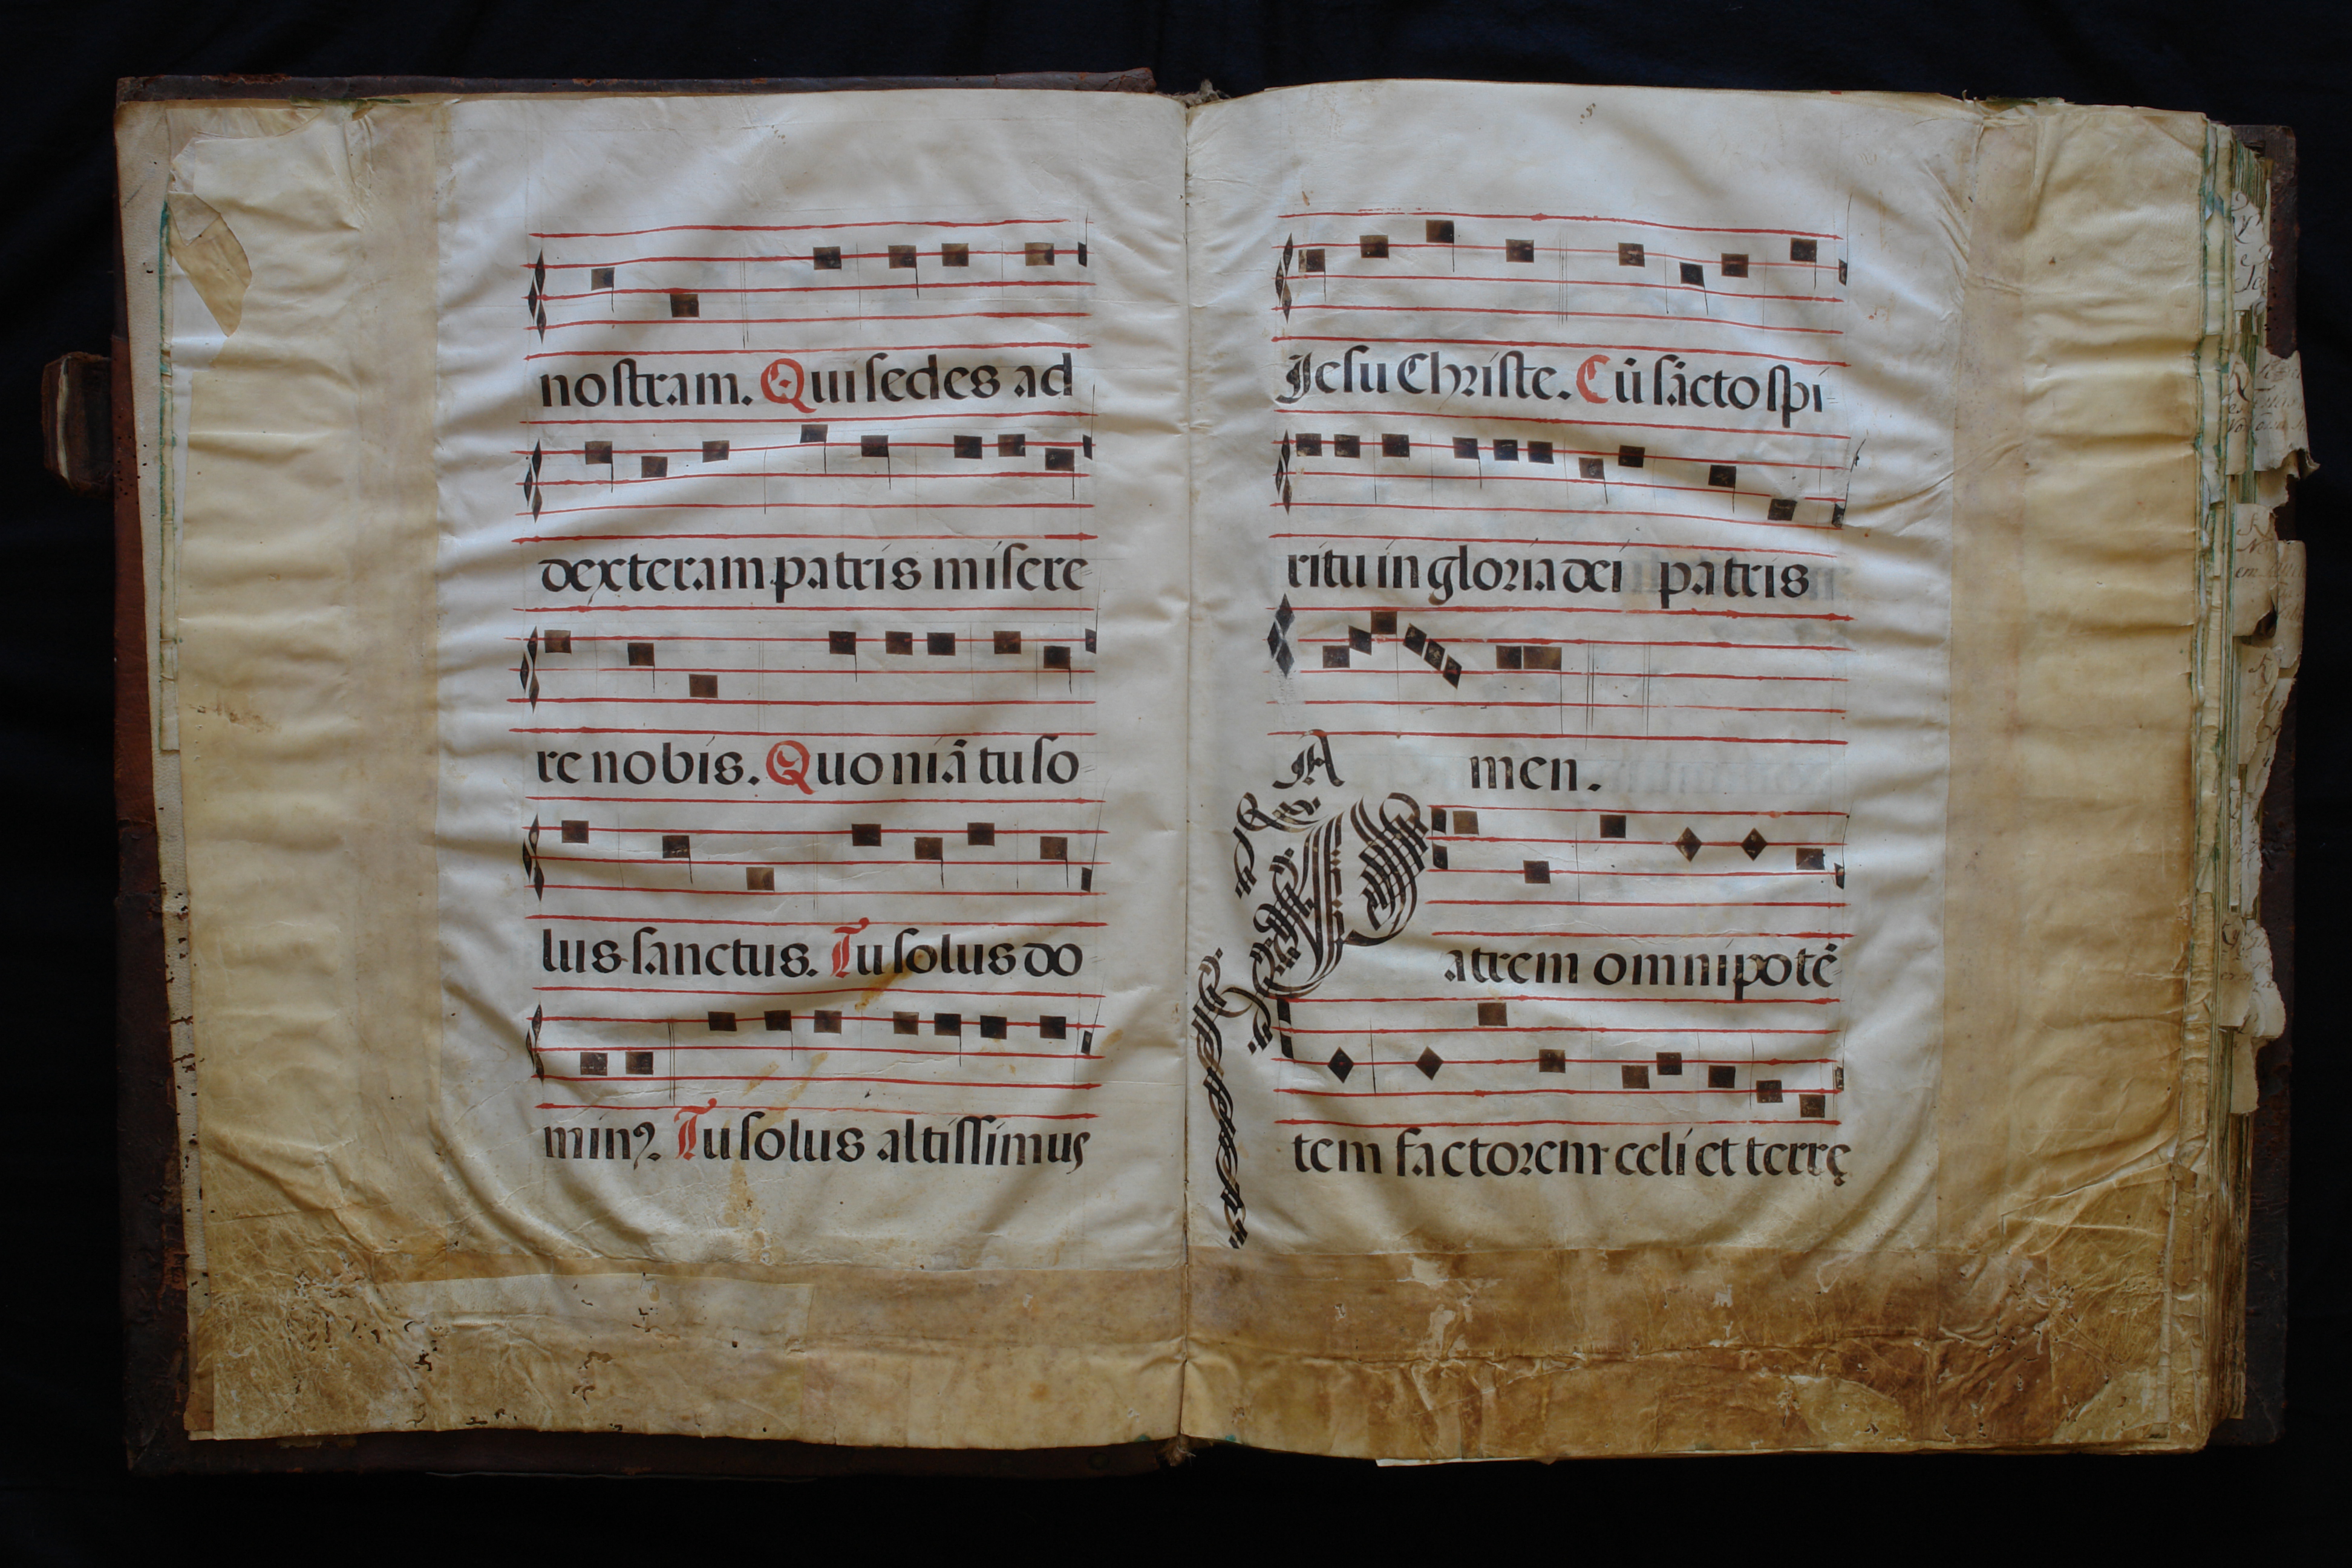 nostram. Qui sedes ad
dexteram patris misere
re nobis. Quoniã tu so
lus sanctus. Tu solus do
minꝰ. Tu solus altissimus
Jesu Christe. Cũ sãcto spi
ritu in gloria dei patris
Amen.
Patrem omnipotẽ
tem factorem celi et terrę